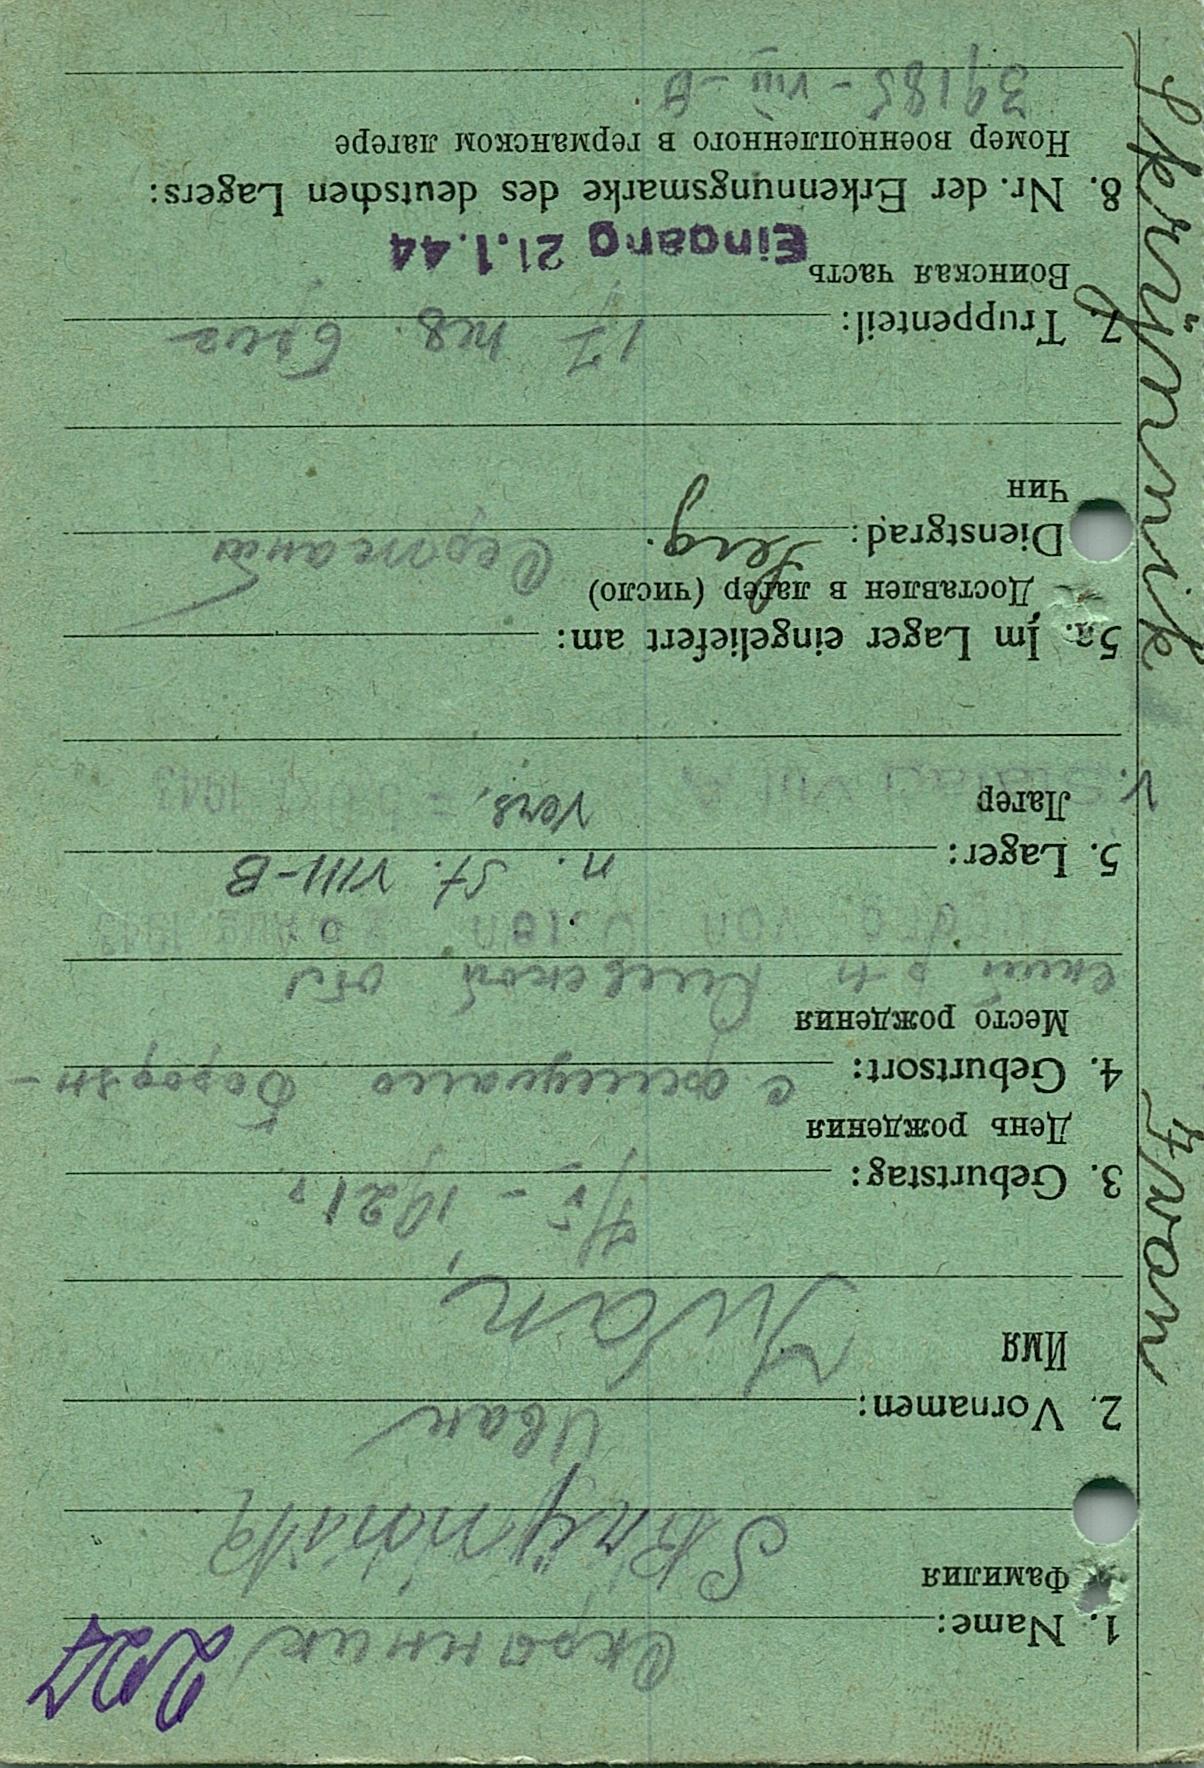 Skrijnnik Iwan
1. Name: Скрынник
Фамилия
Skrijnnik
2. Vornamen: Иван
Имя Iwan
3. Geburtstag: 7/5 - 1921 г
День рождения
4. Geburtsort: с Бородян-
Место рождения
ский р-н Киевской обл
5. Lager: n. St. VIII-B
Лагер vers.
5a. Im Lager eingeliefert am:
Доставлен в лагер (число)
Dienstgrad: Serg. Сержант
Чин
7. Truppenteil: 17
Воинская часть
Eingang 21.1.44
8. Nr. der Erkennungsmarke des deutschen Lagers:
Номер военнопленного в германском лагере
39185 - VIII - A